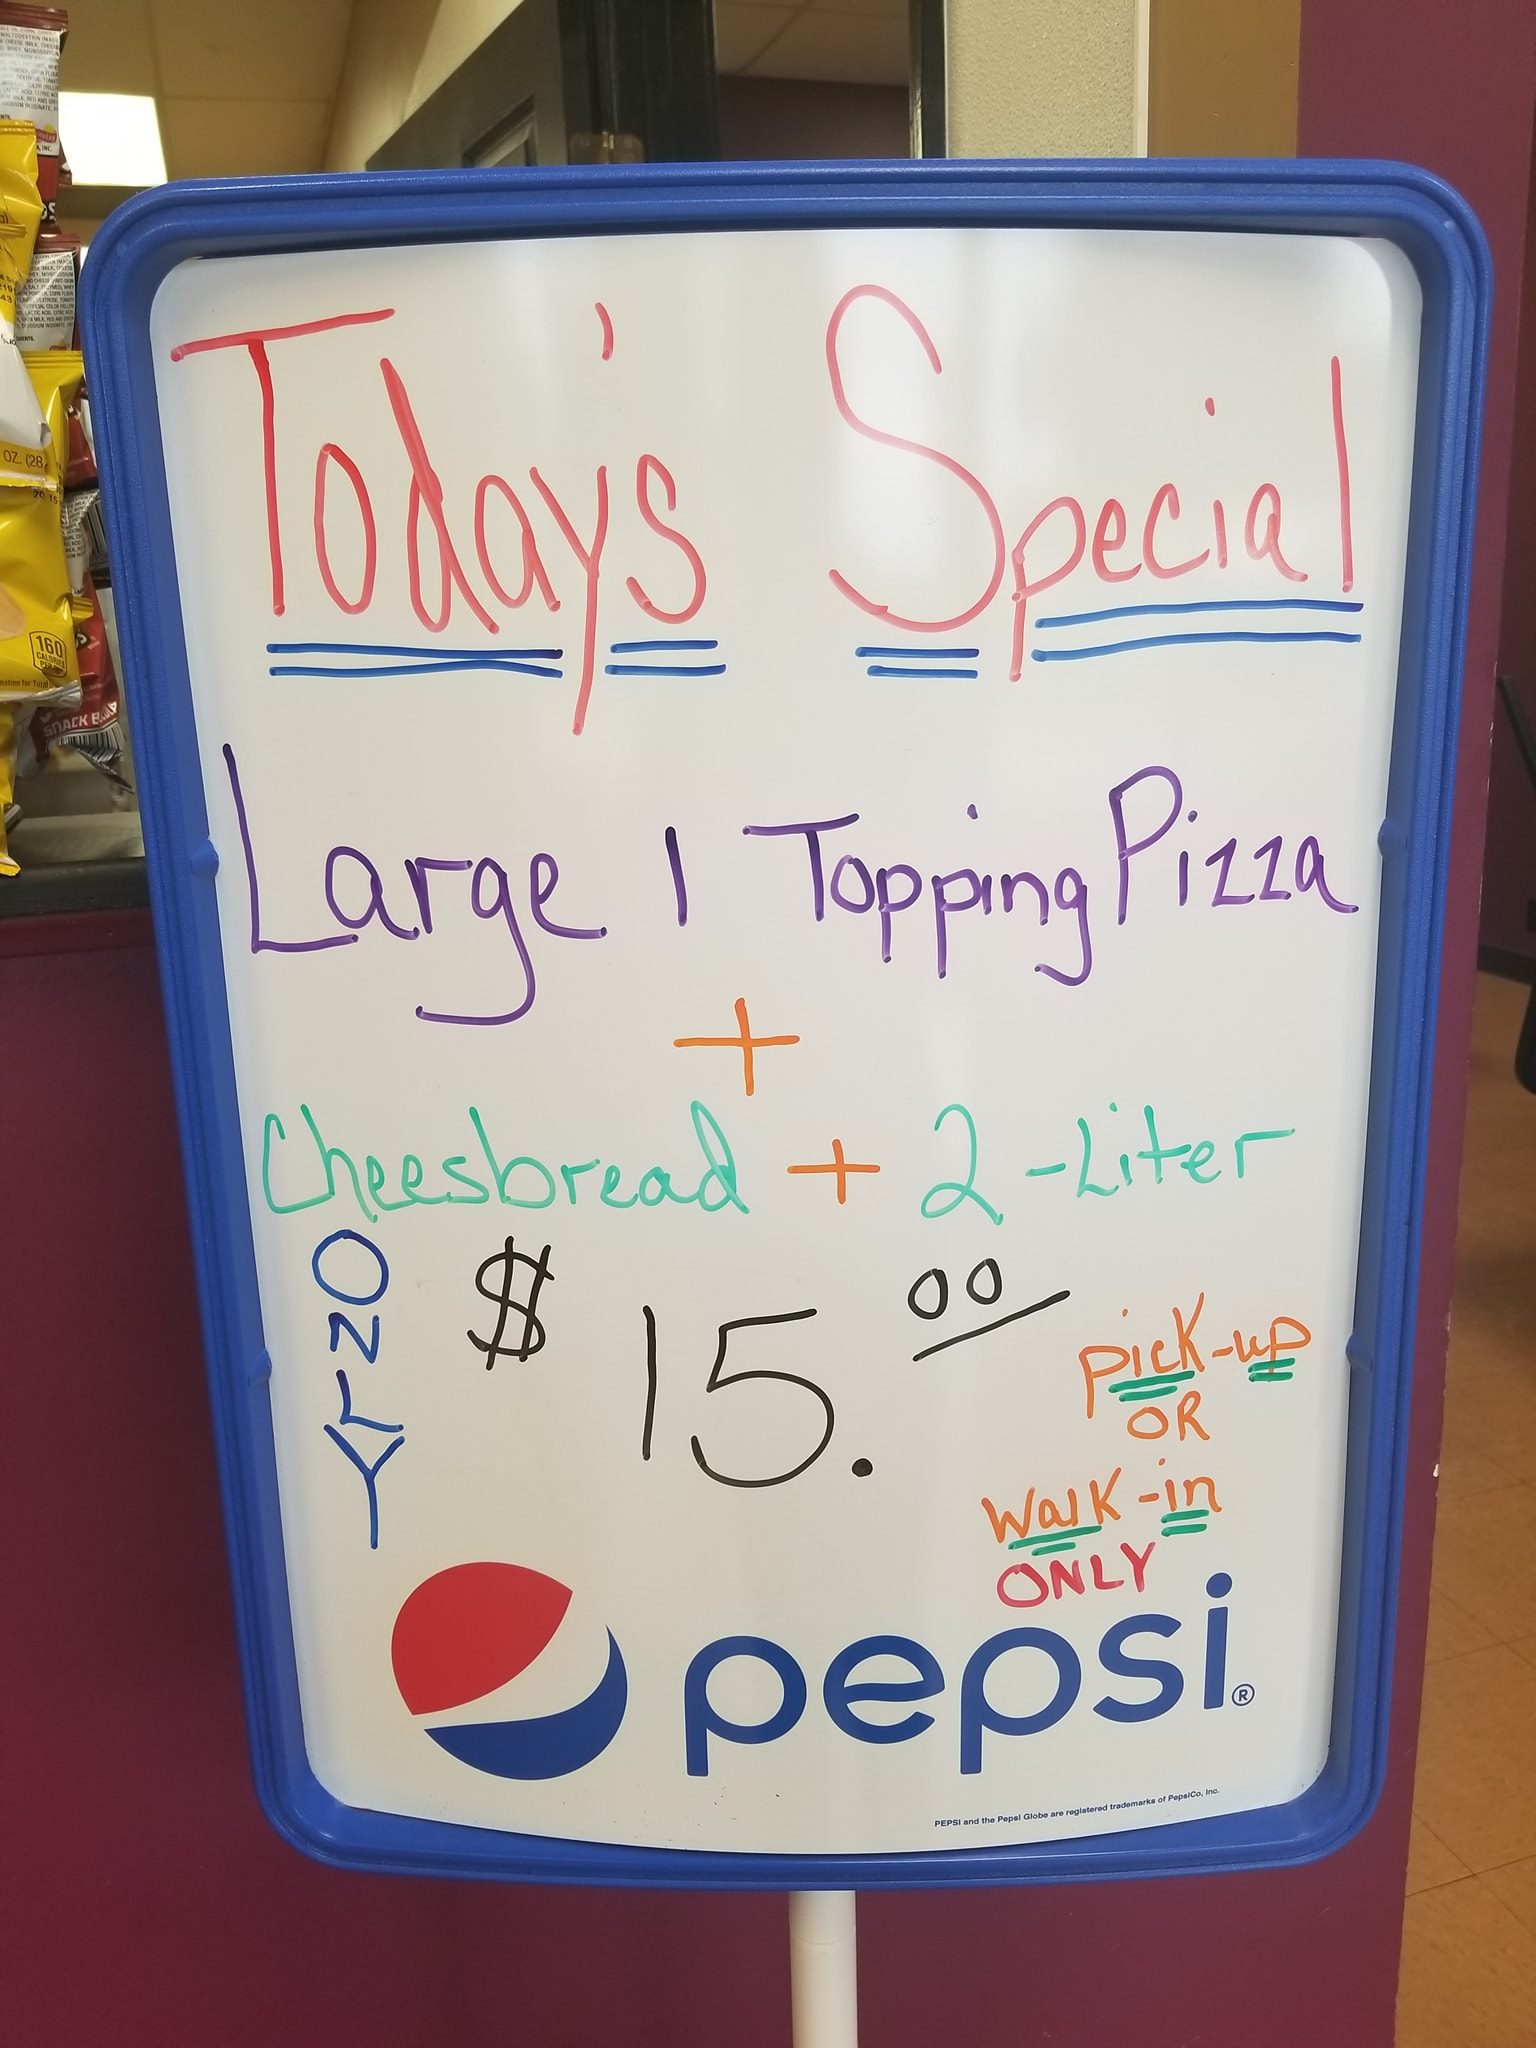 Today's Special
Large 1 Topping Pizza
+
Cheesbread + 2-Liter
ONLY
$15.00
pick-up
OR
Walk-in
ONLY
pepsi®
PEPSI and the Pepsi Globe are registered trademarks of PepsiCo, Inc.
OZ. (28
160
CALORIES
SNACK